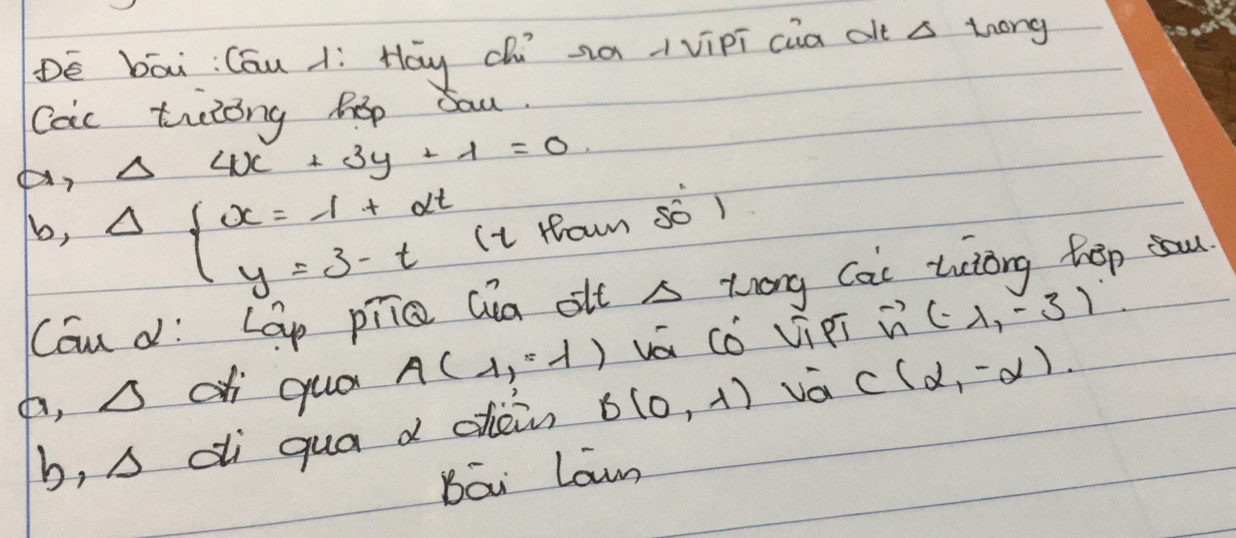 Đề bài: Câu 1: Hãy chỉ ra 1 VTPT của đt Δ trong
Các trường hợp sau.
a, Δ 4x + 3y + 1 = 0.
b, Δ { x = 1 + 2t
y = 3 - t (t tham số)
Câu 2: Lập PTTQ của đt Δ trong các trường hợp sau.
a, Δ đi qua A(1,-1) và có VTPT n⃗ (-1,-3).
b, Δ đi qua 2 điểm B(0,1) và C(2,-2).
Bài làm